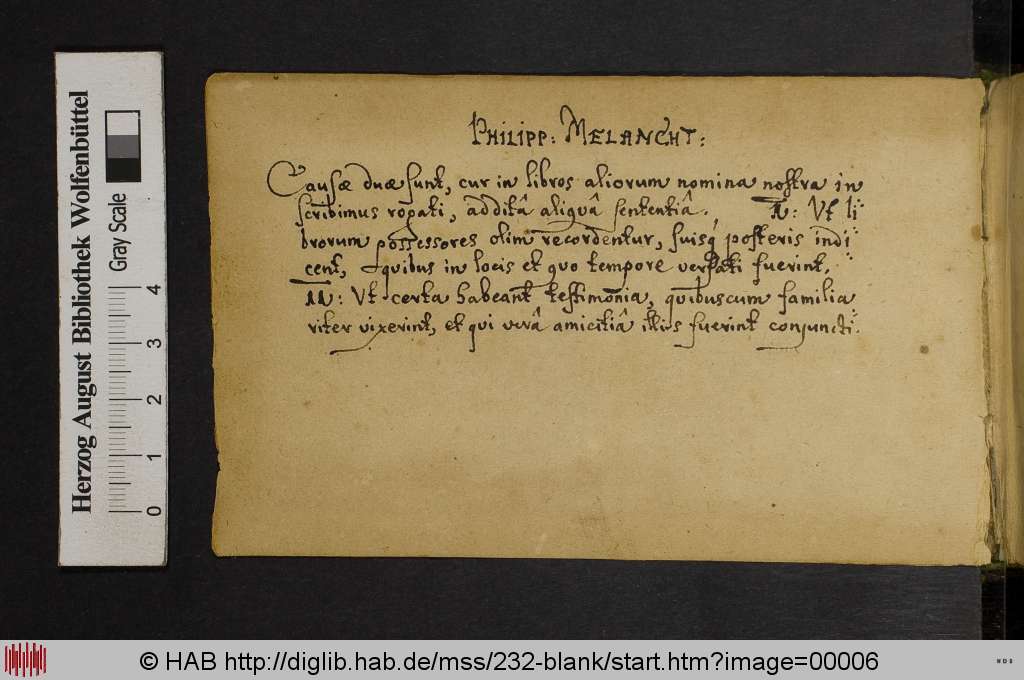 PHILIPP: MELANCHT:
Causæ duæ sunt, cur in libros aliorum nomina nostra in
scribimus rogati, additâ aliquâ sententiâ. : Vt li
brorum possessores olim recordentur, suisq posteris indi
cent, quibus in locis et quo tempore versati fuerint,
: Vt certa habeant testimonia, quibuscum familia
riter vixerint, et qui verâ amicitiâ illis fuerint conjuncti.
Herzog August Bibliothek Wolfenbüttel
Gray Scale
0 1 2 3 4
© HAB http://diglib.hab.de/mss/232-blank/start.htm?image=00006